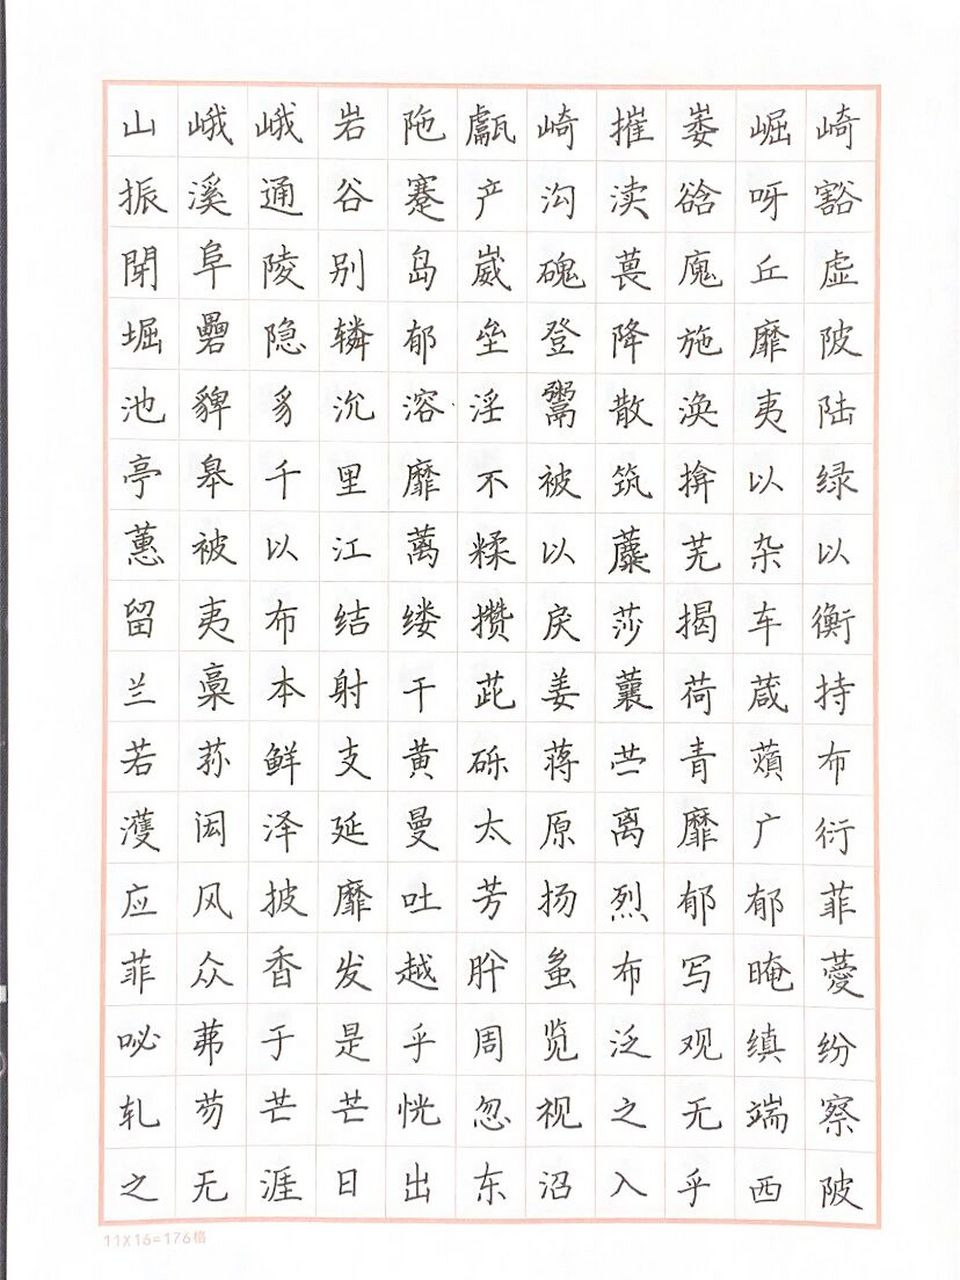 山峨峨岩陁甗崎摧崣崛崎
振溪通谷蹇产沟渎谽呀豁
閕阜陵别岛崴磈葨廆丘虚
堀礨隐辚郁垒登降施靡陂
池貏豸沇溶淫鬻散涣夷陆
亭皋千里靡不被筑揜以绿
蕙被以江蓠糅以蘪芜杂以
留夷布结缕攒戾莎揭车衡
兰稾本射干茈姜蘘荷葴持
若荪鲜支黄砾蒋苎青薠布
濩闳泽延曼太原离靡广衍
应风披靡吐芳扬烈郁郁菲
菲众香发越肸蚃布写晻薆
咇茀于是乎周览泛观缜纷
轧芴芒芒恍忽视之无端察
之无涯日出东沼入乎西陂
11X16=176格